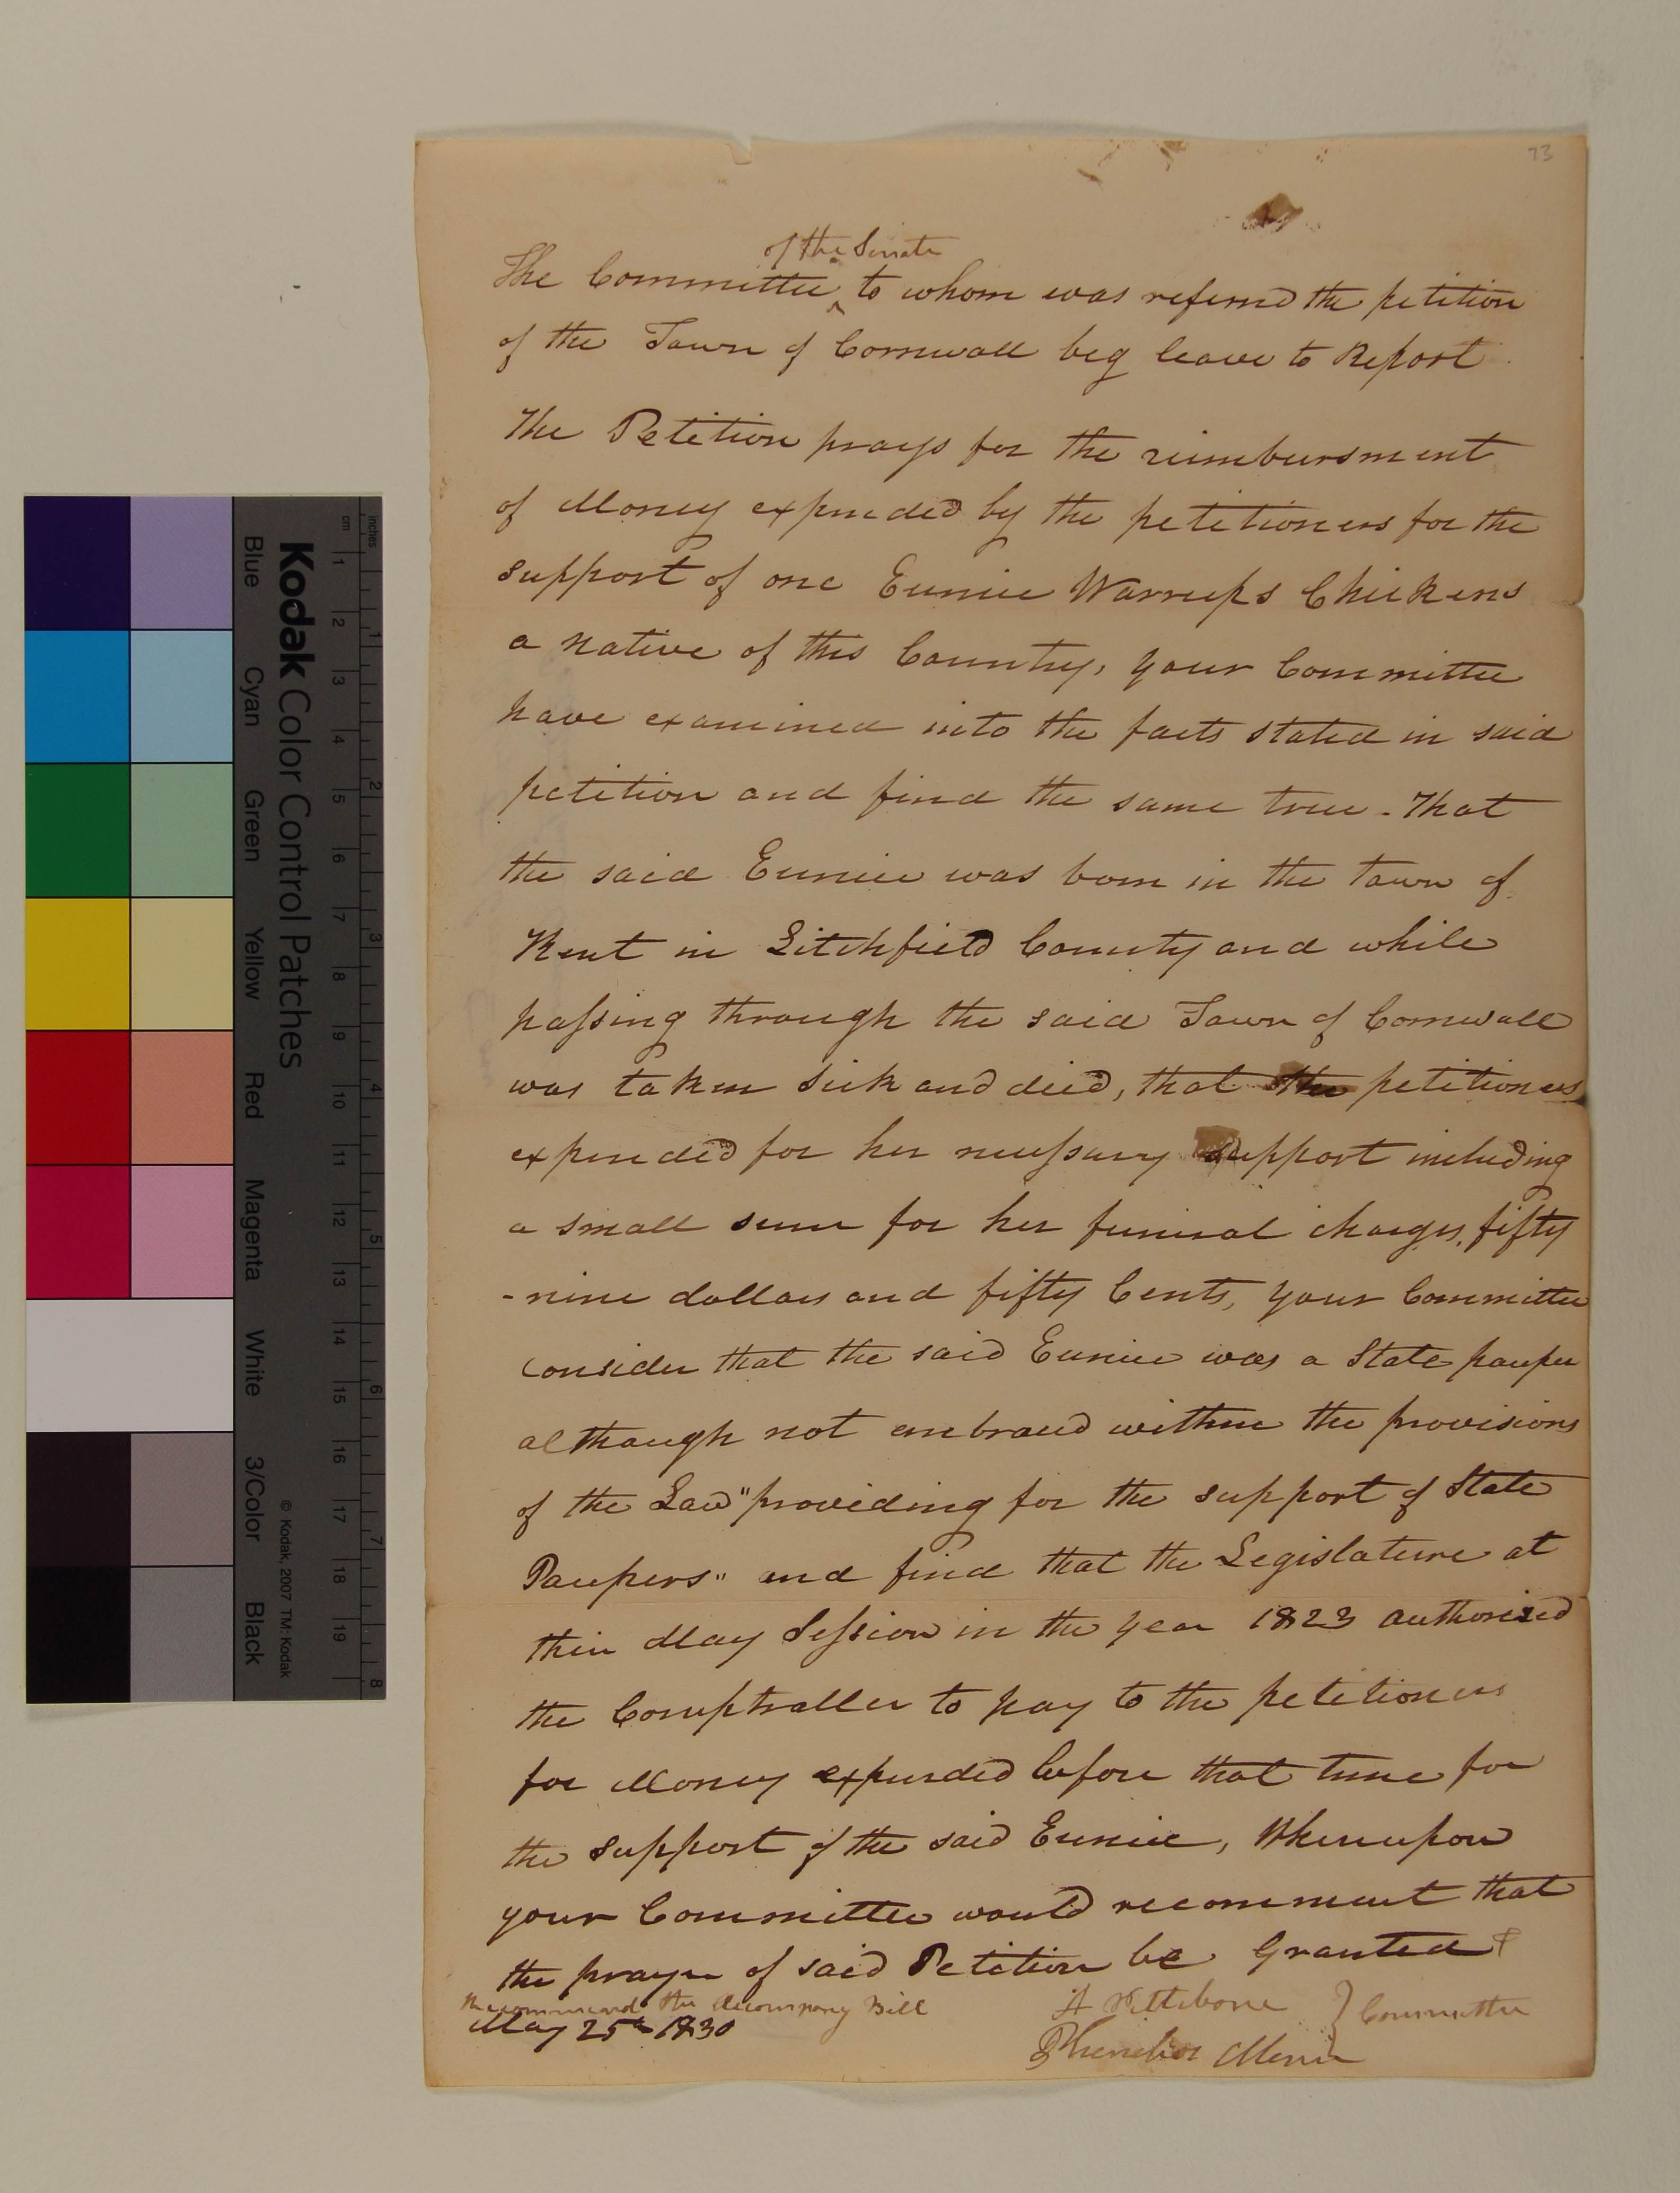 73
of the Senate
The Committee ^ to whom was referred the petition
of the Town of Cornwall beg leave to Report
The Petition prays for the reimbursment
of Money expended by the petitioners for the
support of one Eunice Warrups Chickens
a native of this Country, your Committee
have examined into the facts stated in said
petition and find the same true - That
the said Eunice was born in the town of
Kent in Litchfield County and while
passing through the said Town of Cornwall
was taken sick and died, that the petitioners
expended for her necessary support including
a small sum for her funeral charges, fifty
-nine dollars and fifty Cents, your Committee
consider that the said Eunice was a State pauper
although not embraced within the provisions
of the Law "providing for the support of State
Paupers" and find that the Legislature at
their May Session in the year 1823 authorized
the Comptroller to pay to the petitioners
for Money expended before that time for
the support of the said Eunice, Whereupon
your Committee would recomment that
the prayer of said Petition be Granted &
recommend the accompany Bill
May 25th 1830
A Pettibone } Committee
Merwin
Kodak Color Control Patches
© Kodak, 2007 TM: Kodak
Blue Cyan Green Yellow Red Magenta White 3/Color Black
cm 1 2 3 4 5 6 7 8 9 10 11 12 13 14 15 16 17 18 19
inches 1 2 3 4 5 6 7 8